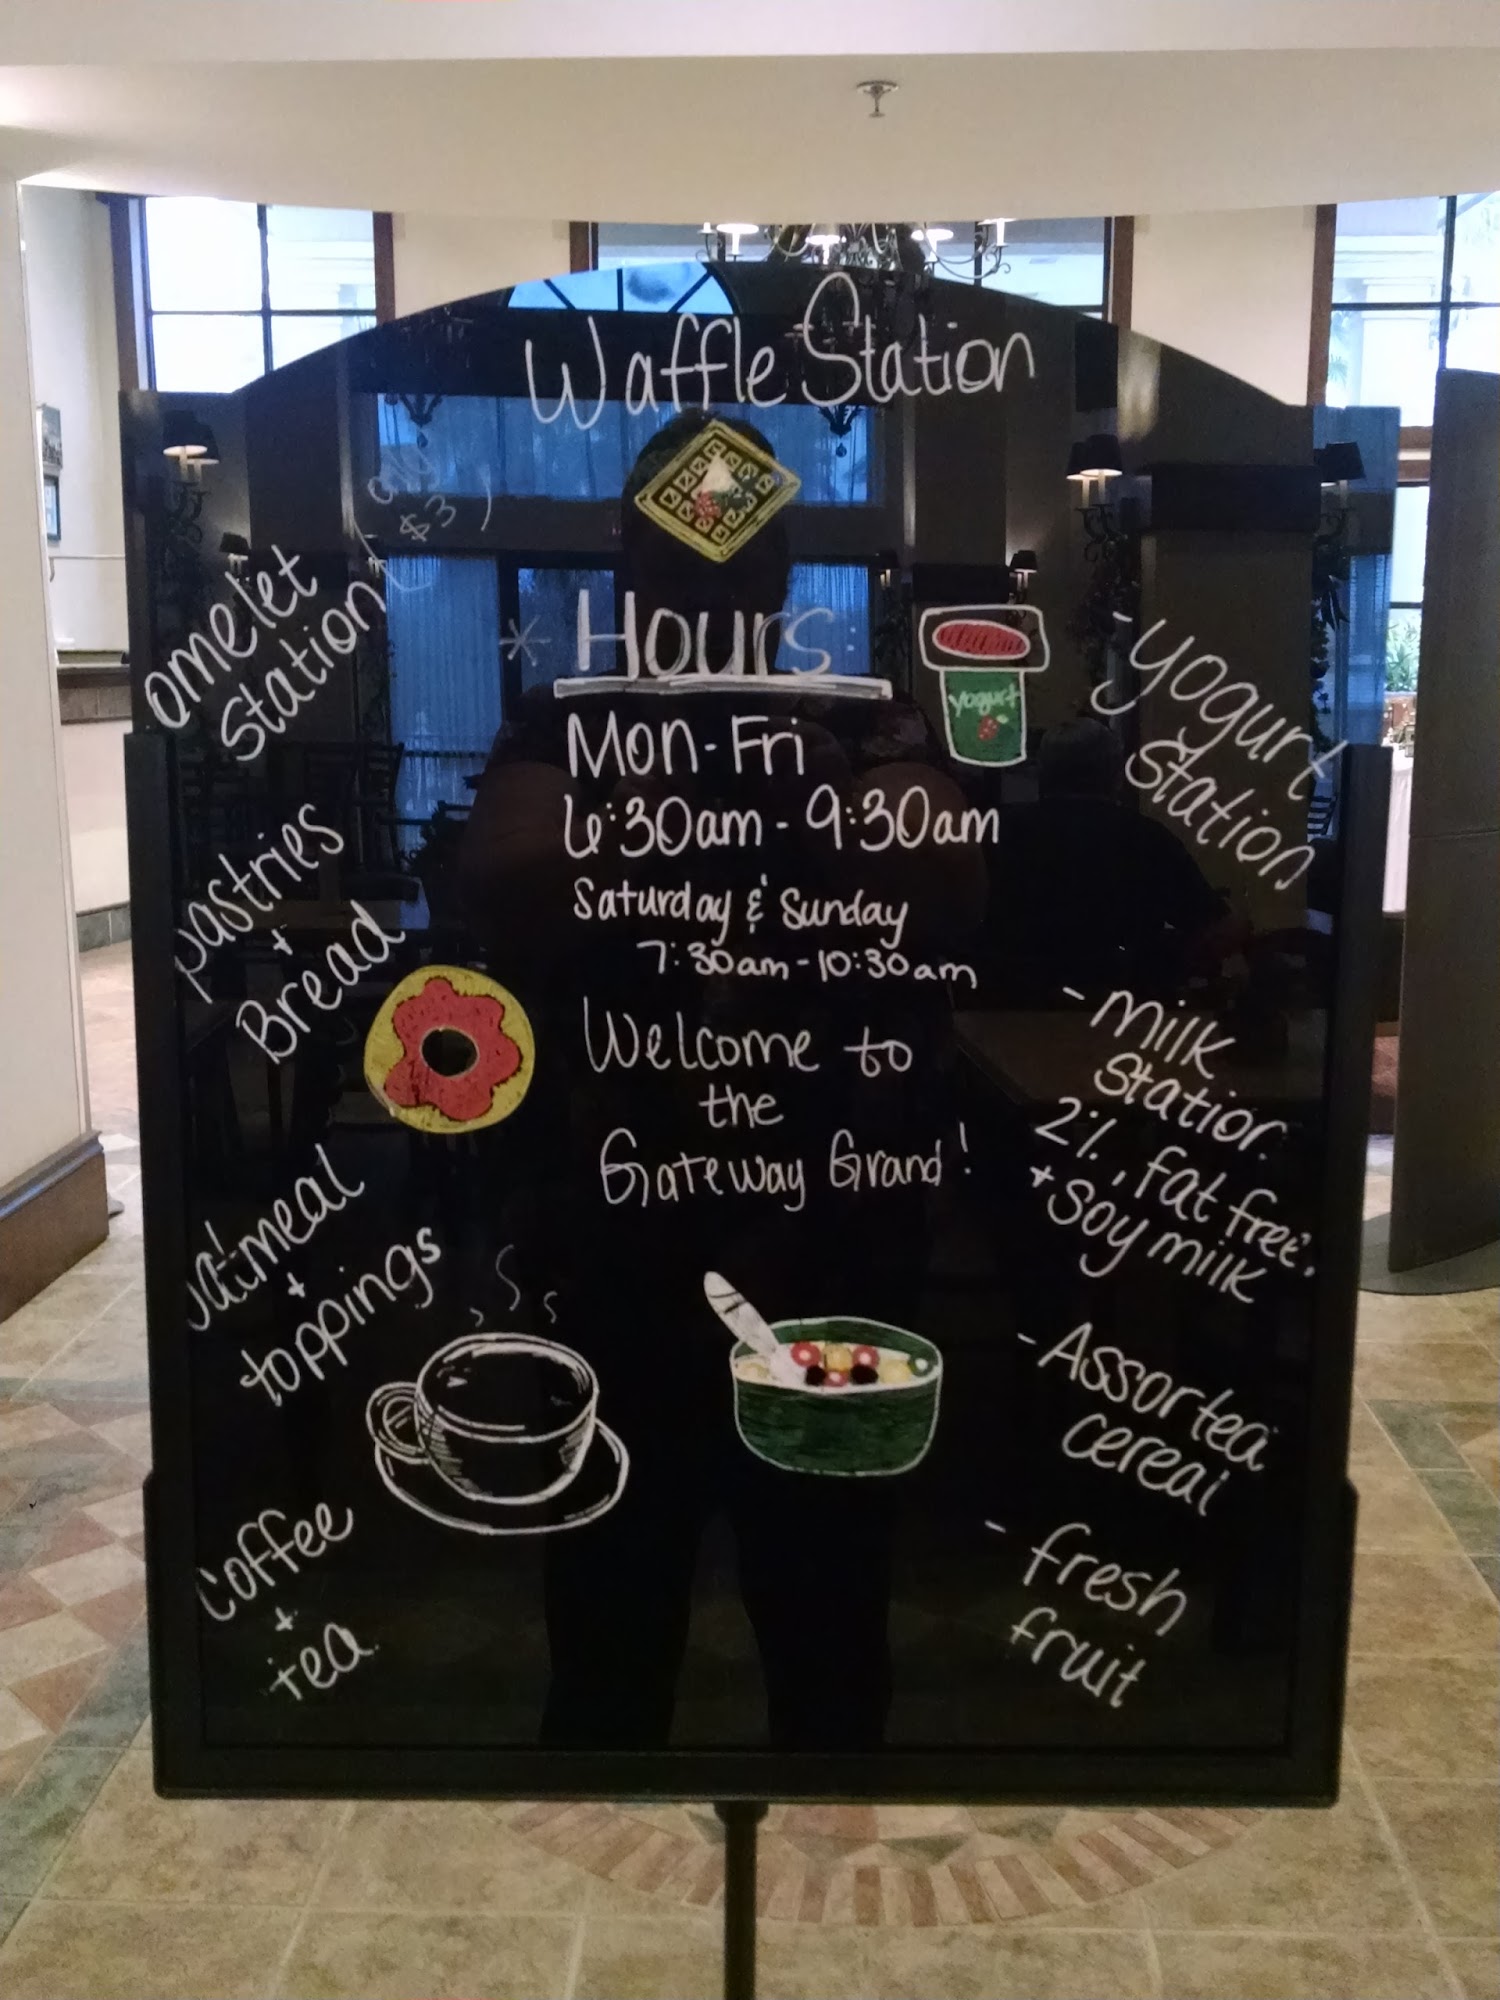 Waffle Station
omelet
station
(add
$3)
pastries
+
Bread
oatmeal
+
toppings
coffee
+
tea
* Hours:
Mon-Fri
6:30am - 9:30am
Saturday & Sunday
7:30am-10:30am
Welcome to
the
Gateway Grand!
yogurt
- yogurt
station
- milk
station.
2%, fat free.
+ soy milk
- Assortea
cereal
- fresh
fruit